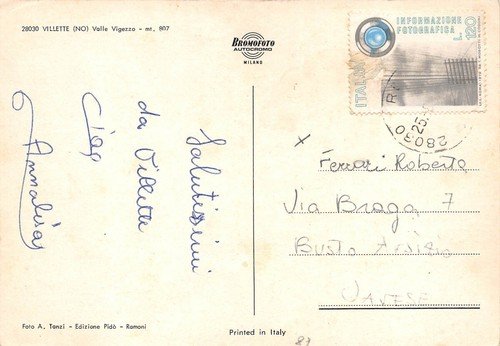 28030 VILLETTE (NO) Valle Vigezzo - mt. 807
BROMOFOTO
AUTOCROMO
MILANO
ITALIA
INFORMAZIONE
FOTOGRAFICA
L. 120
28030
25
Salutissimi
da Villette
Ciao
Annalisa
x Ferrari Roberto
Via Braga, 7
Busto Arsizio
VARESE
Foto A. Tanzi - Edizione Pidò - Ramoni
Printed in Italy